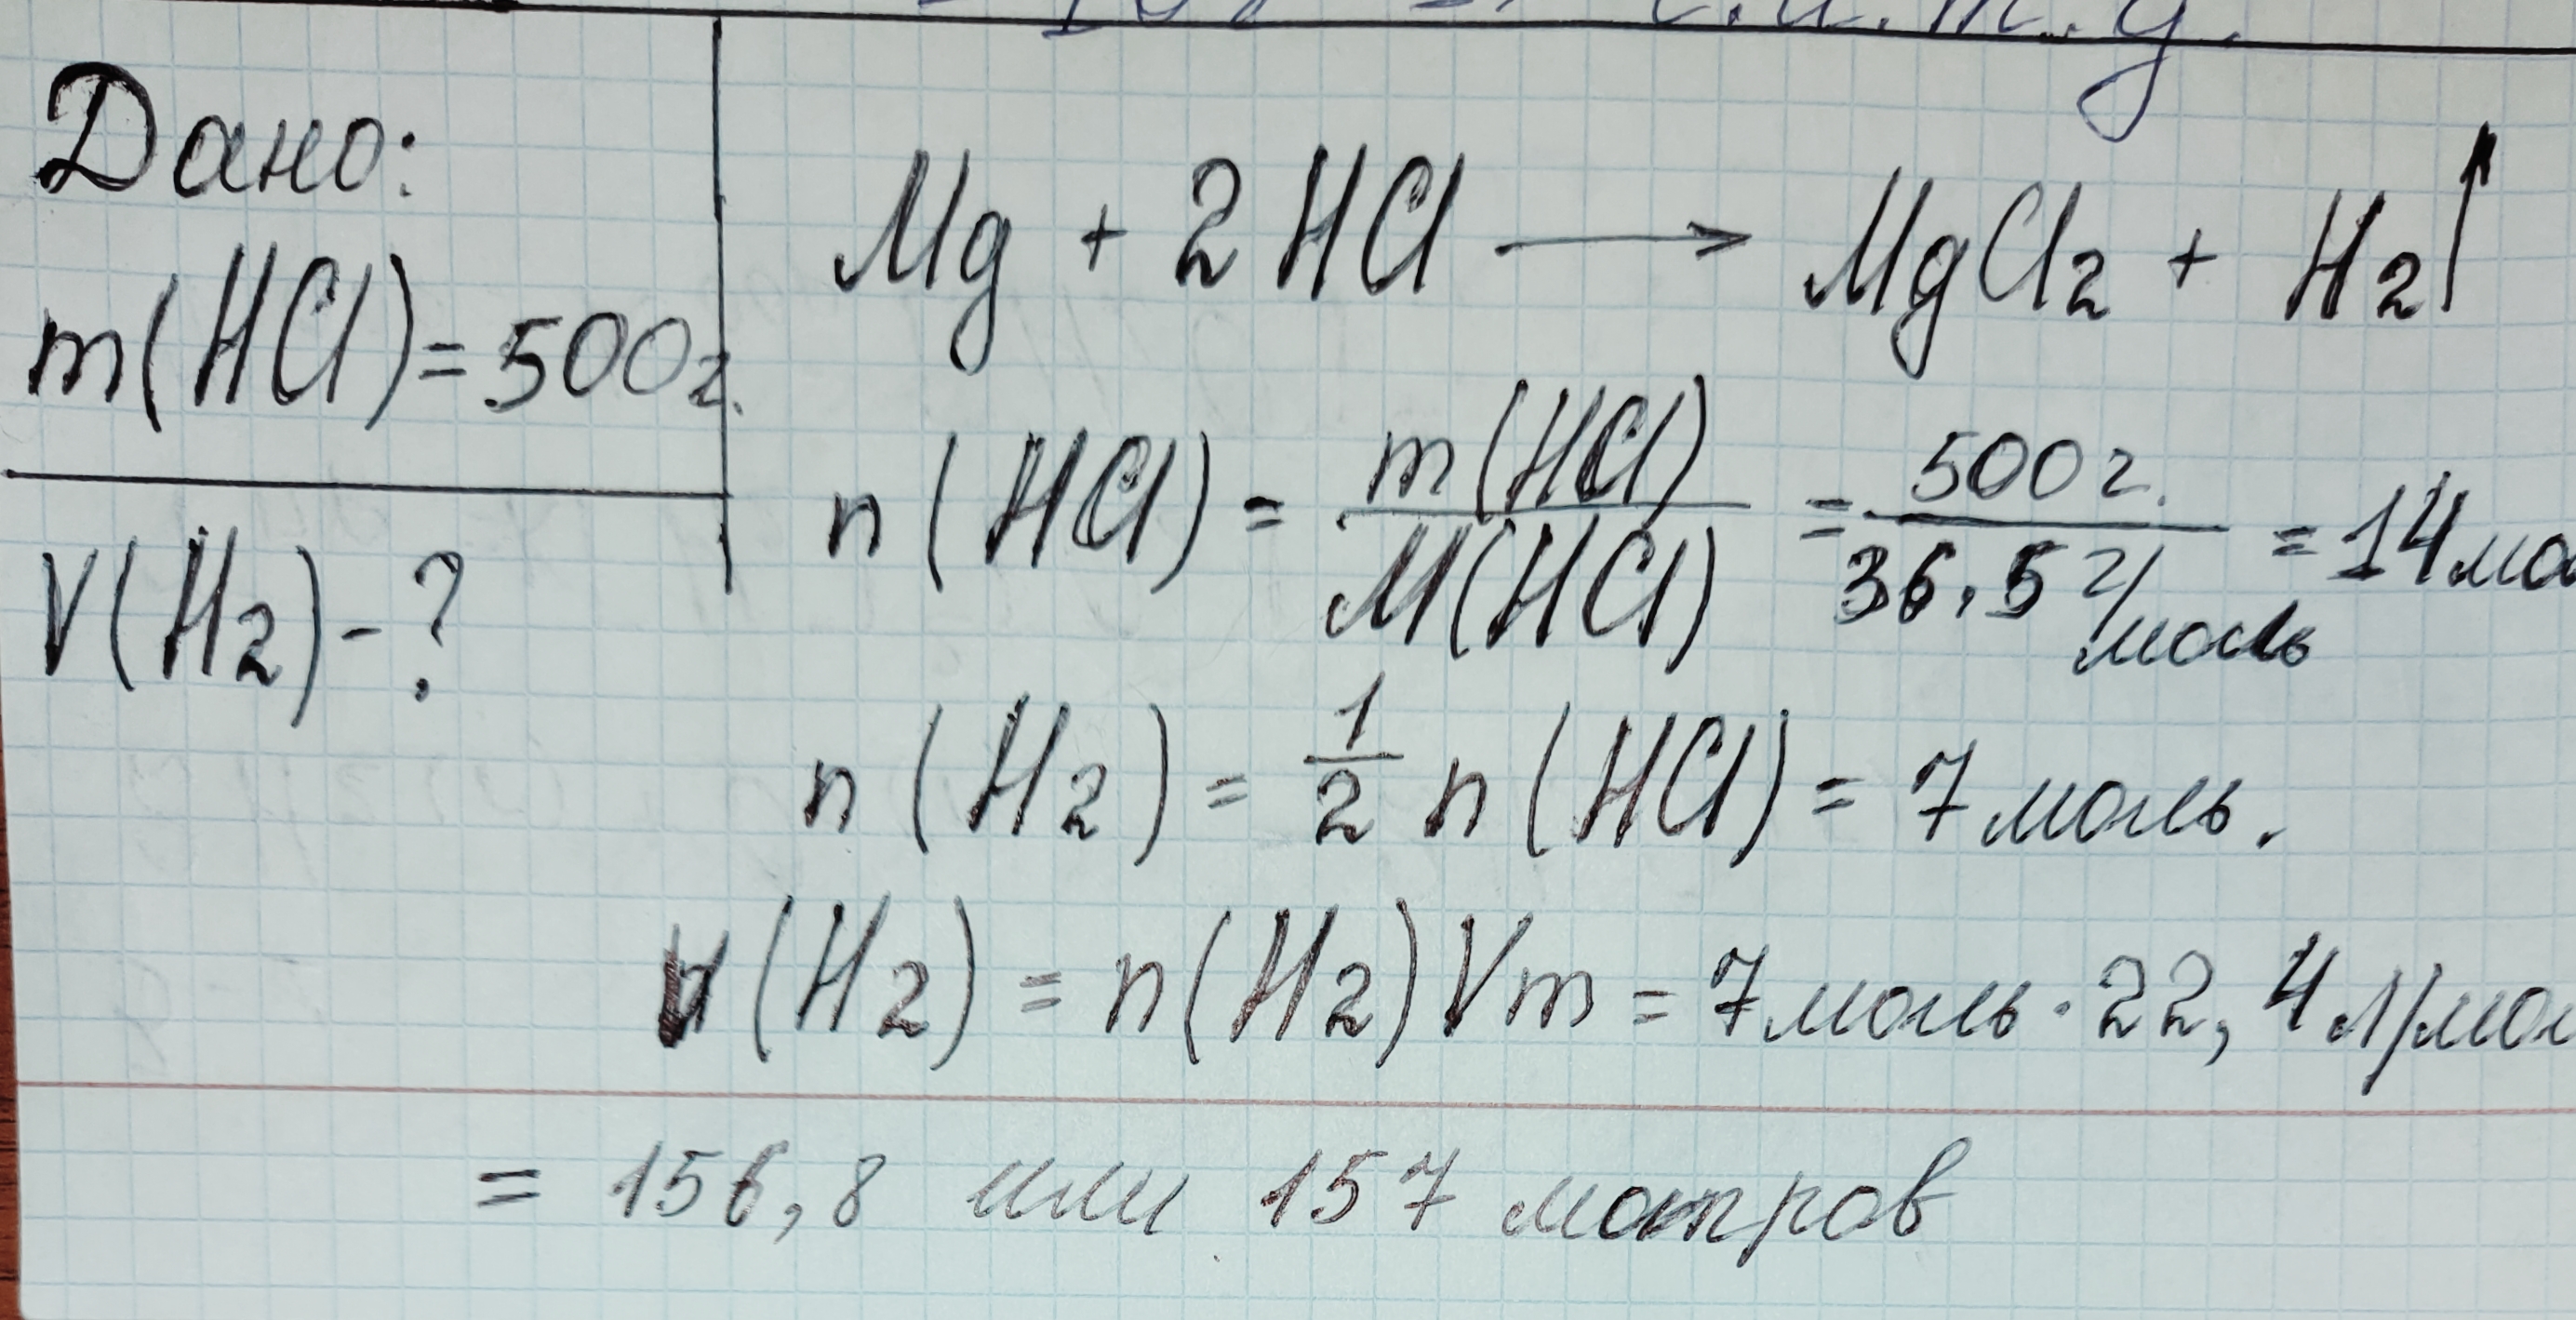 Дано:
m(HCl)=500г.
V(H2)-?
Mg + 2HCl ⟶ MgCl2 + H2↑
n(HCl) = m(HCl)/M(HCl) = 500г./36,5 г/моль = 14мо
n(H2) = 1/2 n(HCl) = 7 моль.
V(H2) = n(H2)Vm = 7моль·22,4л/мол
= 156,8 или 157 мотров